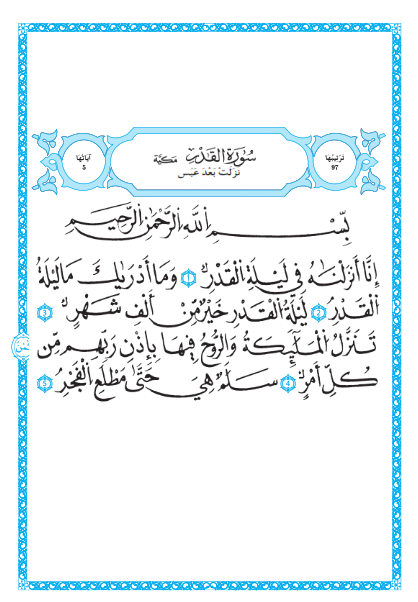 ترتيبها
97
سُورَةُ القَدْرِ مَكِيَّة
نزلت بَعْد عَبَسَ
آياتها
5
بِسْمِ اللَّهِ الرَّحْمَٰنِ الرَّحِيمِ
إِنَّا أَنزَلْنَاهُ فِي لَيْلَةِ الْقَدْرِ 1 وَمَا أَدْرَيٰكَ مَا لَيْلَةُ
الْقَدْرِ 2 لَيْلَةُ الْقَدْرِ خَيْرٌ مِّنْ أَلْفِ شَهْرٍ 3
تَنَزَّلُ الْمَلَٰٓئِكَةُ وَالرُّوحُ فِيهَا بِإِذْنِ رَبِّهِم مِّن
كُلِّ أَمْرٍ 4 سَلَٰمٌ هِيَ حَتَّىٰ مَطْلَعِ الْفَجْرِ 5